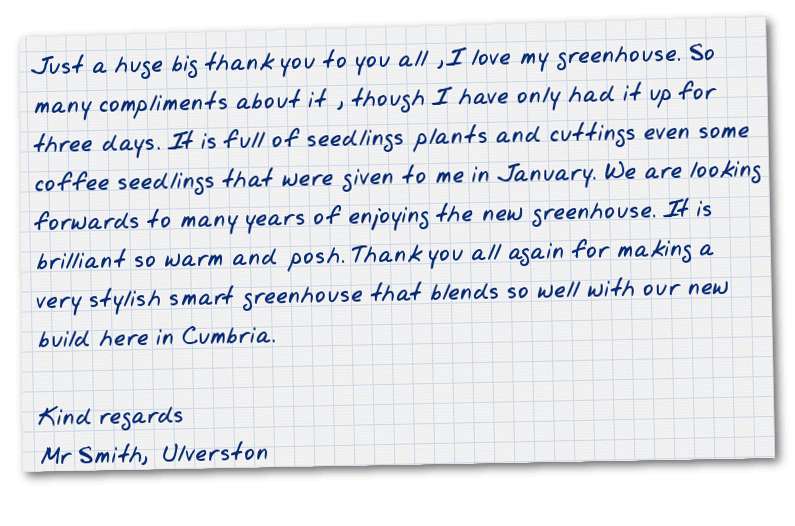 Just a huge big thank you to you all ,I love my greenhouse. So
many compliments about it , though I have only had it up for
three days. It is full of seedlings plants and cuttings even some
coffee seedlings that were given to me in January. We are looking
forwards to many years of enjoying the new greenhouse. It is
brilliant so warm and posh. Thank you all again for making a
very stylish smart greenhouse that blends so well with our new
build here in Cumbria.
Kind regards
Mr Smith, Ulverston